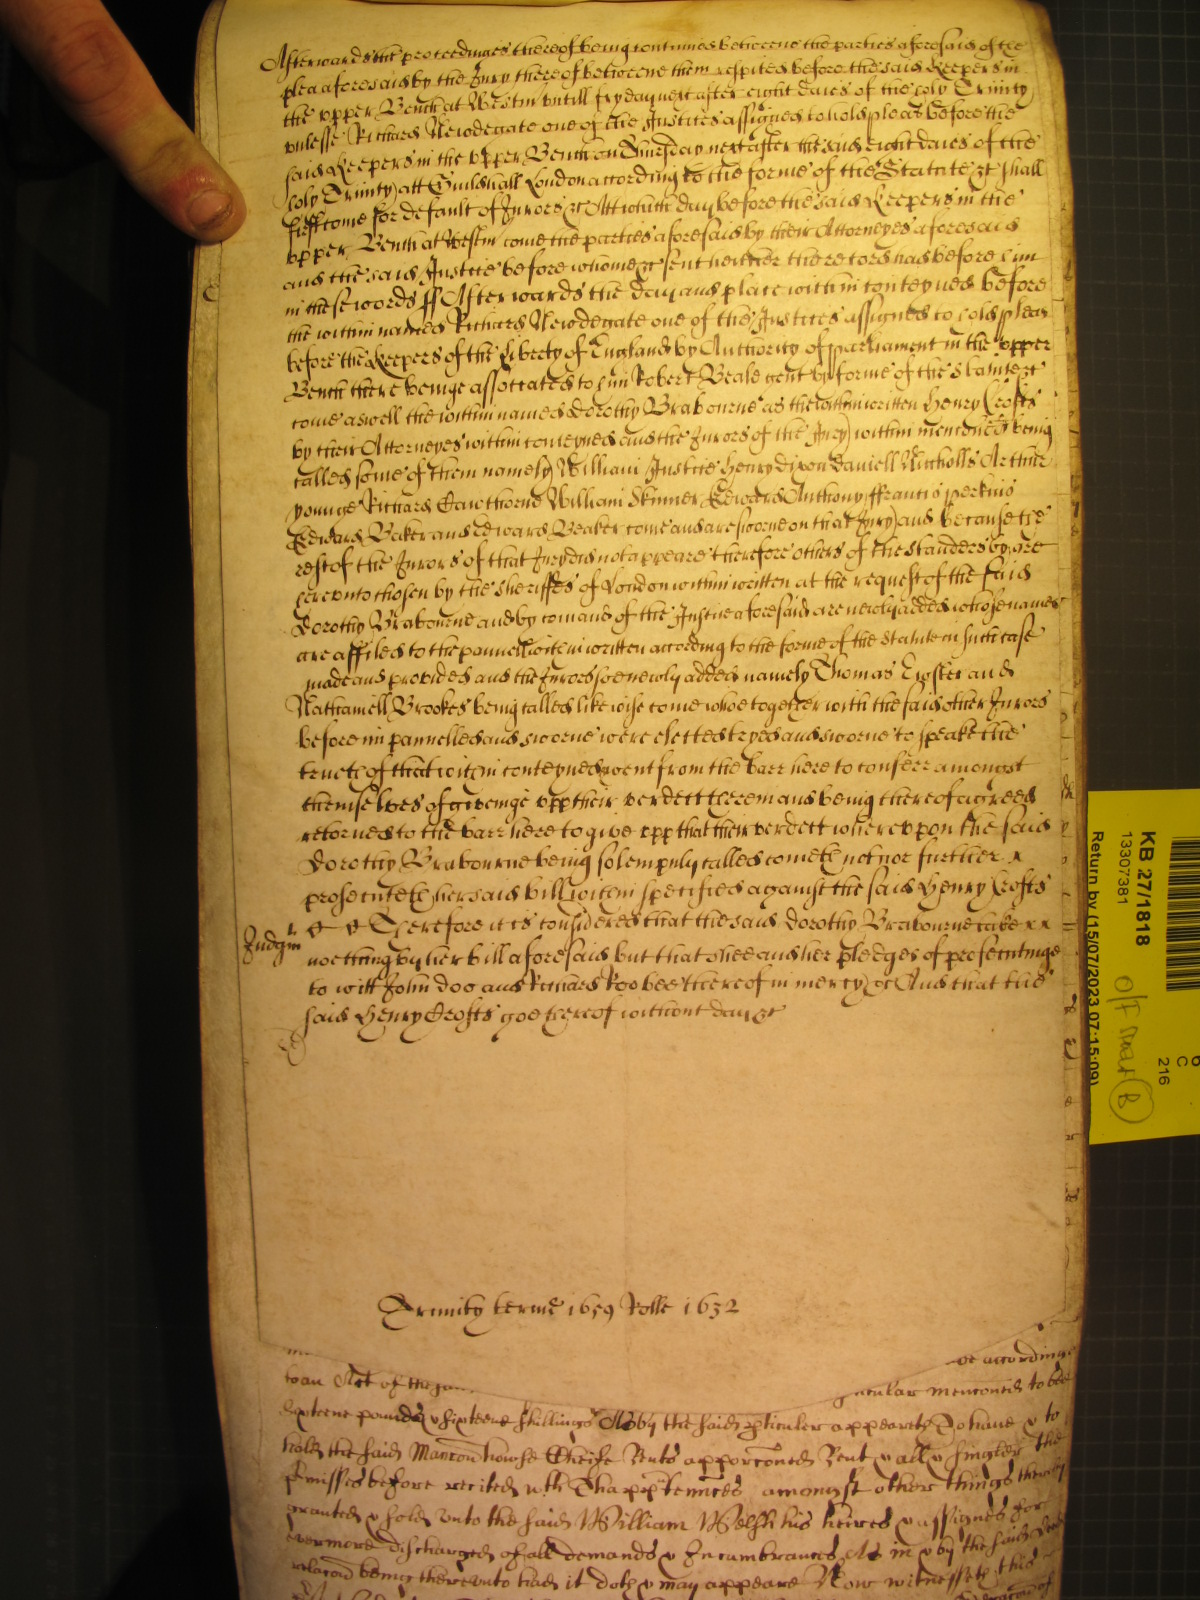 Afterwards the proceedinges thereof being continued betweene the parties aforesaid of the
plea aforesaid by the Jury thereof betweene them respited before the said Keepers in
the upper Bench at Westm untill fryday next after eight daies of the holy Trinity
unlesse Richard Newdegate one of the Justices assigned to hold pleas before the
said Keepers in the upper Bench on Thursday next after the said eight daies of the
holy Trinity att Guildhall London according to the forme of the Statute &c shall
first come for default of Jurors &c Att which day before the said Keepers in the
upper Bench at Westm come the parties aforesaid by their Attorneyes aforesaid
and the said Justice before whome &c sent hether the record had before him
in these words ss Afterwards the day and place within conteyned before
the within named Richard Newdegate one of the Justices assigned to hold pleas
before the Keepers of the Liberty of England by Authority of parliament in the upper
Bench there beinge associated to him Robert Beale gent by forme of the statute &c
come aswell the within named Dorothy Brabourne as the within written Henry Crofts
by their Attorneyes within conteyned and the Jurors of the Jury within menconed being
called some of them namely William Justice Henry Dixon Daniell Nicholls Arthur
younge Richard Cawthorne William Skinner Edward Anthony ffrancis perkins
Edward Baker and Edward Beaker come and are sworne on that Jury and because the
rest of the Jurors of that Jury did not appeare therefore others of the standers by are
hereunto chosen by the sheriffes of London within written at the request of the said
Dorothy Brabourne and by comand of the Justice aforesaid are newly added whose names
are affiled to the pannell within written according to the forme of the statute in such case
made and provided and the Jurors soe newly added namely Thomas and
Nathaniell Brookes being called likewise come whoe together with the said other Jurors
before impannelled and sworne were elected tryed and sworne to speake the
truth of that within conteyned went from the barr here to conferr amongst
themselves of giveinge upp their verdect therein and being thereof agreed
retorned to the barr here to give upp that their verdect whereupon the said
Dorothy Brabourne being solempnly called cometh not nor further x
prosecuteth her said bill within specified against the said Henry Crofts
Judgm Therefore it is considered that the said Dorothy Brabourne take x x
nothing by her bill aforesaid but that shee and her pledges of prosecutinge
to witt John Doo and Richard Roo bee thereof in mercy &c And that the
said Henry Crofts goe thereof without day &c
Trinity terme 1659 Rolle 1632
according
to an Act of the menconed to bee
pounds & sixteene shillings As by the said pticuler appeareth To have & to
hold the said Mancon howse Cheife Rents apporconed Rent & all & singler the
pmisses before recited wth Thapptennces amongst other things thereby
granted & sold unto the said William Welsh his heires & assignes for
evermore discharged of all demands & Incumbrances As in & by the said deed
relacon being thereunto had it doth & may appeare Now witnesseth this
KB 27/1818
13307381
Return by (15/07/2023 07:15:09)
6
C
216
B